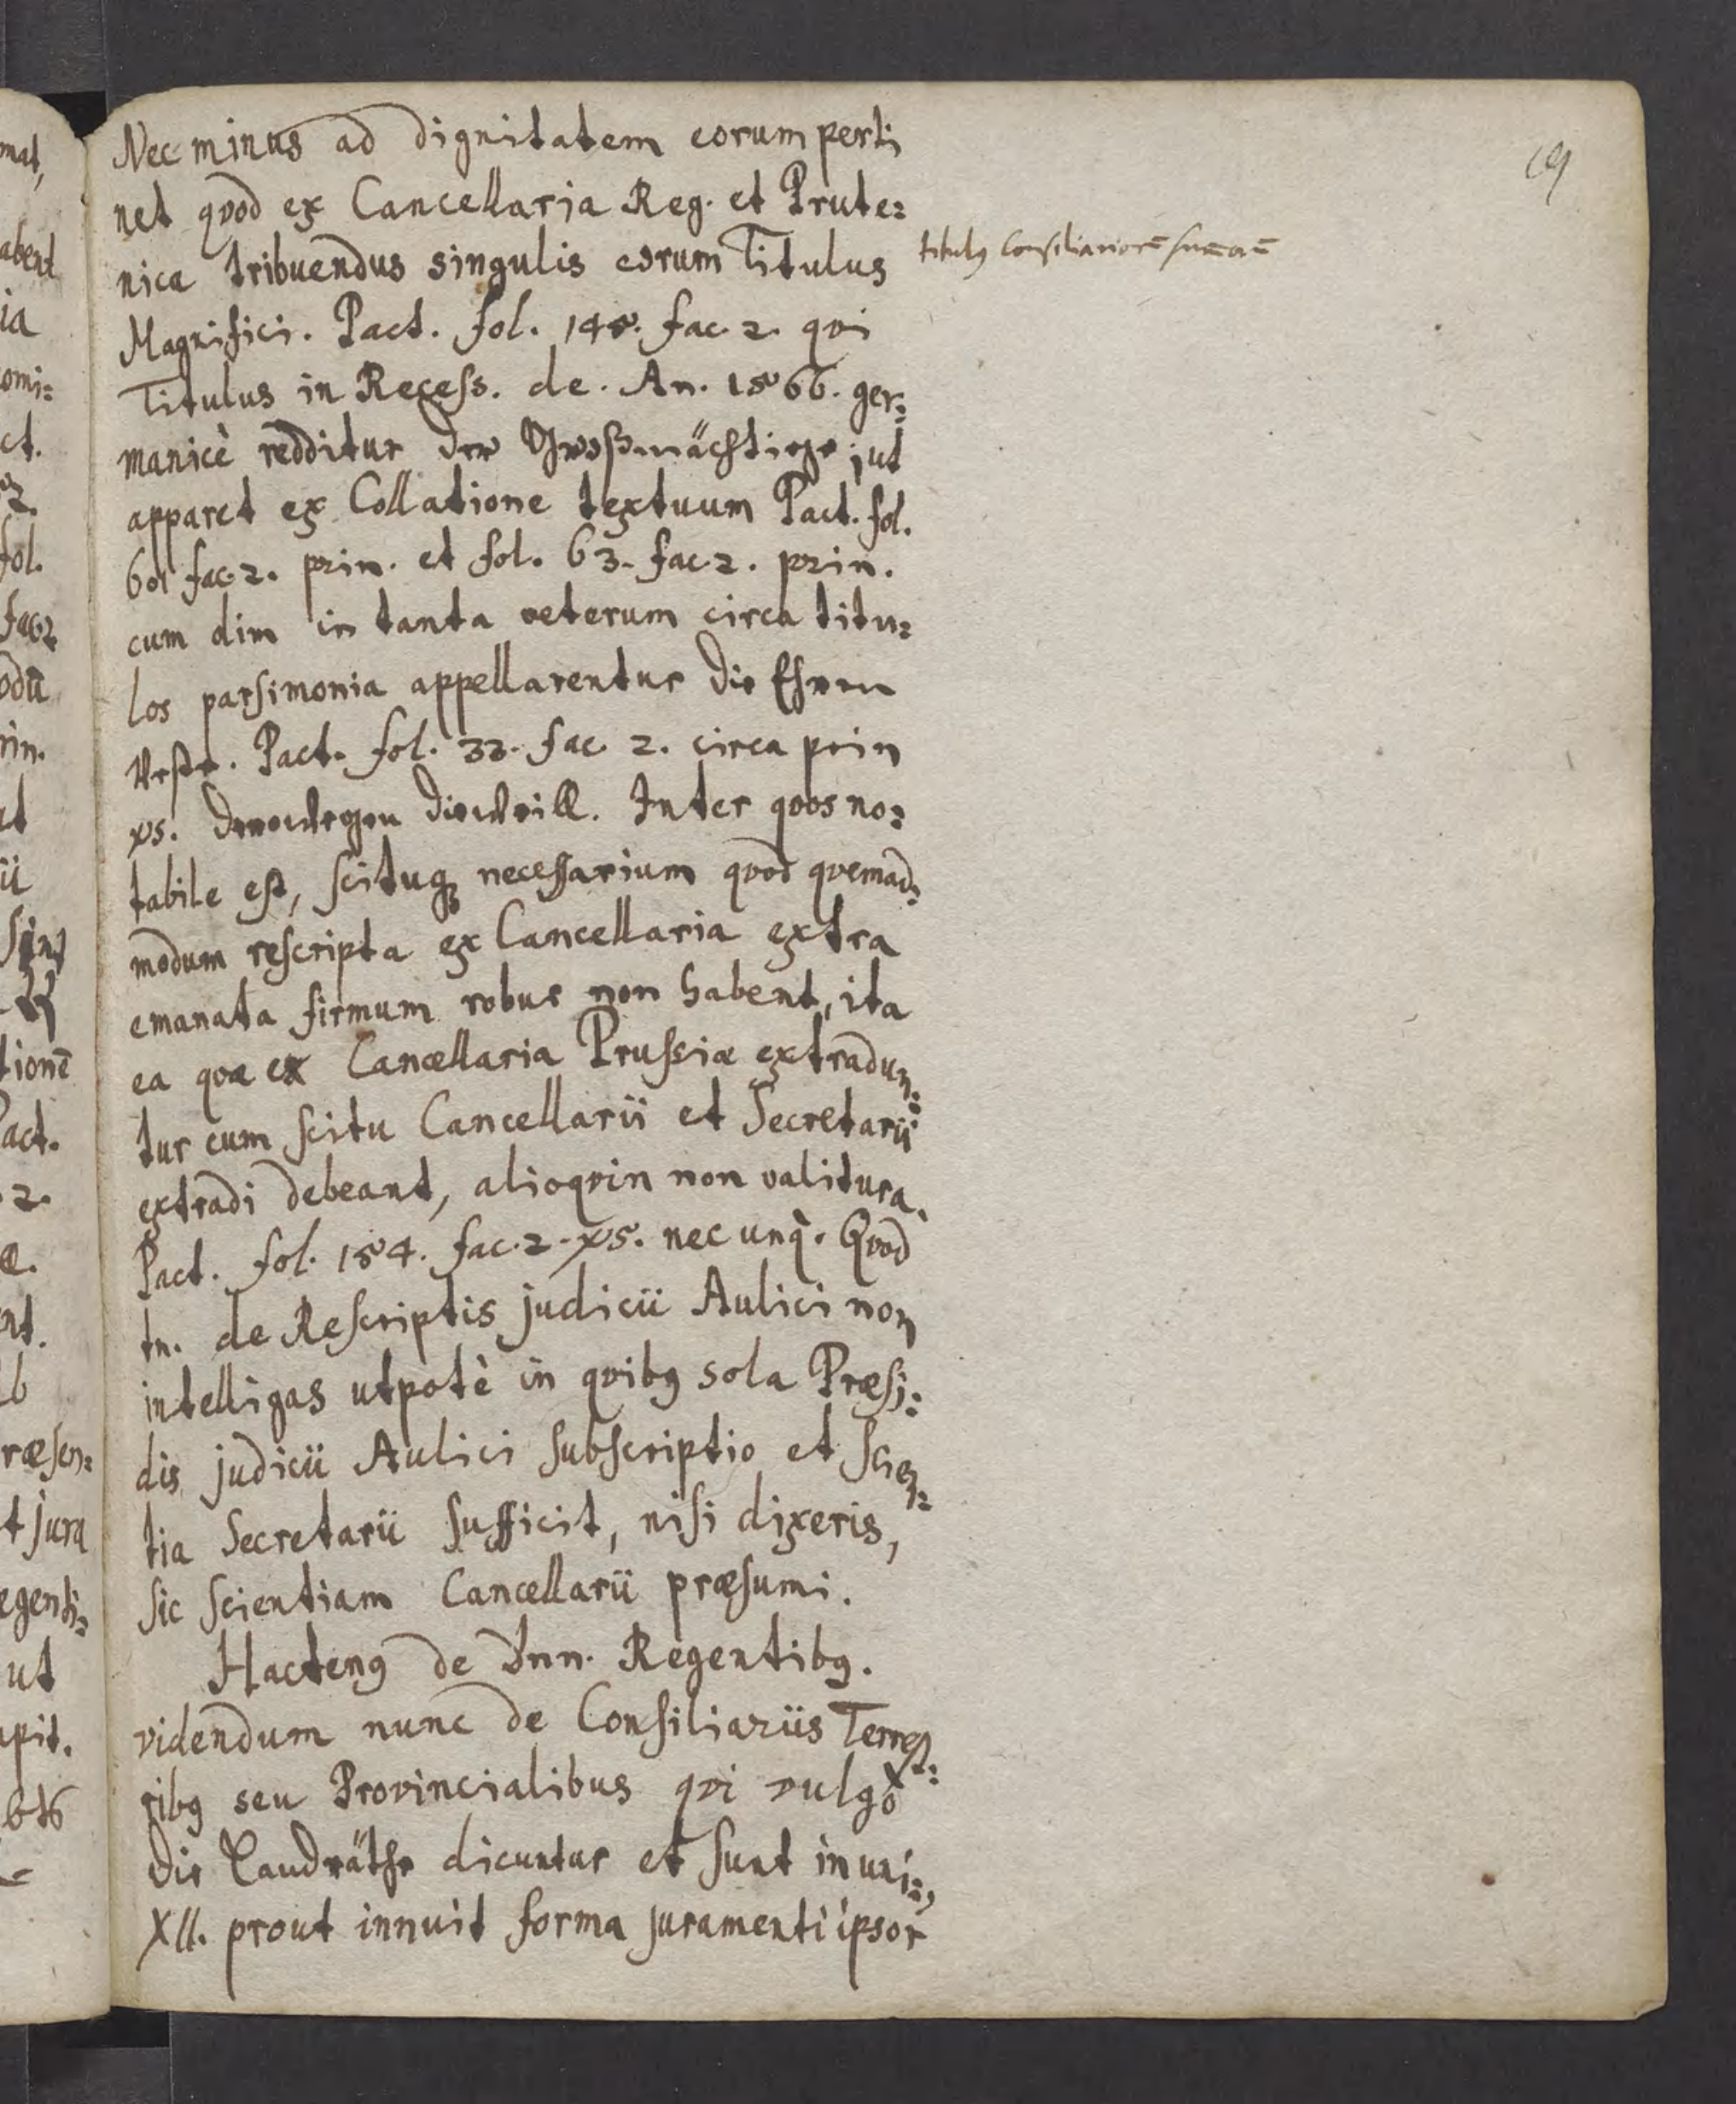 19
Nec minus ad dignitatem eorum perti
net qvod ex Cancellaria Reg. et Prute=
nica tribuendus singulis eorum Titulus
titulus Consiliariorū
Magnifici. Pact. fol. 145. fac. 2. qvi
Titulus in Recess. de. An. 1566. ger=
manicè redditur der Großmächtige, ut
apparet ex Collatione textuum Pact. fol.
fac. 2. prin. et fol. 63. fac. 2. prin.
cum dim in tanta veterum circa titu=
los parsimonia appellarentur die Ehren
Veste. Pact. fol. 33. fac. 2. circa prin
xs. Inter qvos no=
tabile est, scituq; necessarium qvod qvemad=
modum rescripta ex Cancellaria extra
emanata firmum robur non habent, ita
ea qvæ ex Cancellaria Prussiæ extradun=
tur cum scitu Cancellarii et Secretarii
extradi debeant, alioqvin non valitura.
Pact. fol. 154. fac. 2. xs. nec unq̀. Qvod
tn. de Rescriptis judicii Aulici non
intelligas utpotè in qvibus sola Præsi=
dis judicii Aulici subscriptio et Scien=
tia Secretarii sufficit, nisi dixeris,
sic scientiam Cancellarii præsumi.
Hactenus de Dnn. Regentibus.
videndum nunc de Consiliariis Terrest=
ribus seu Provincialibus qvi vulgò
die Landräthe dicuntur et sunt
XII. prout innuit forma juramenti ipsor